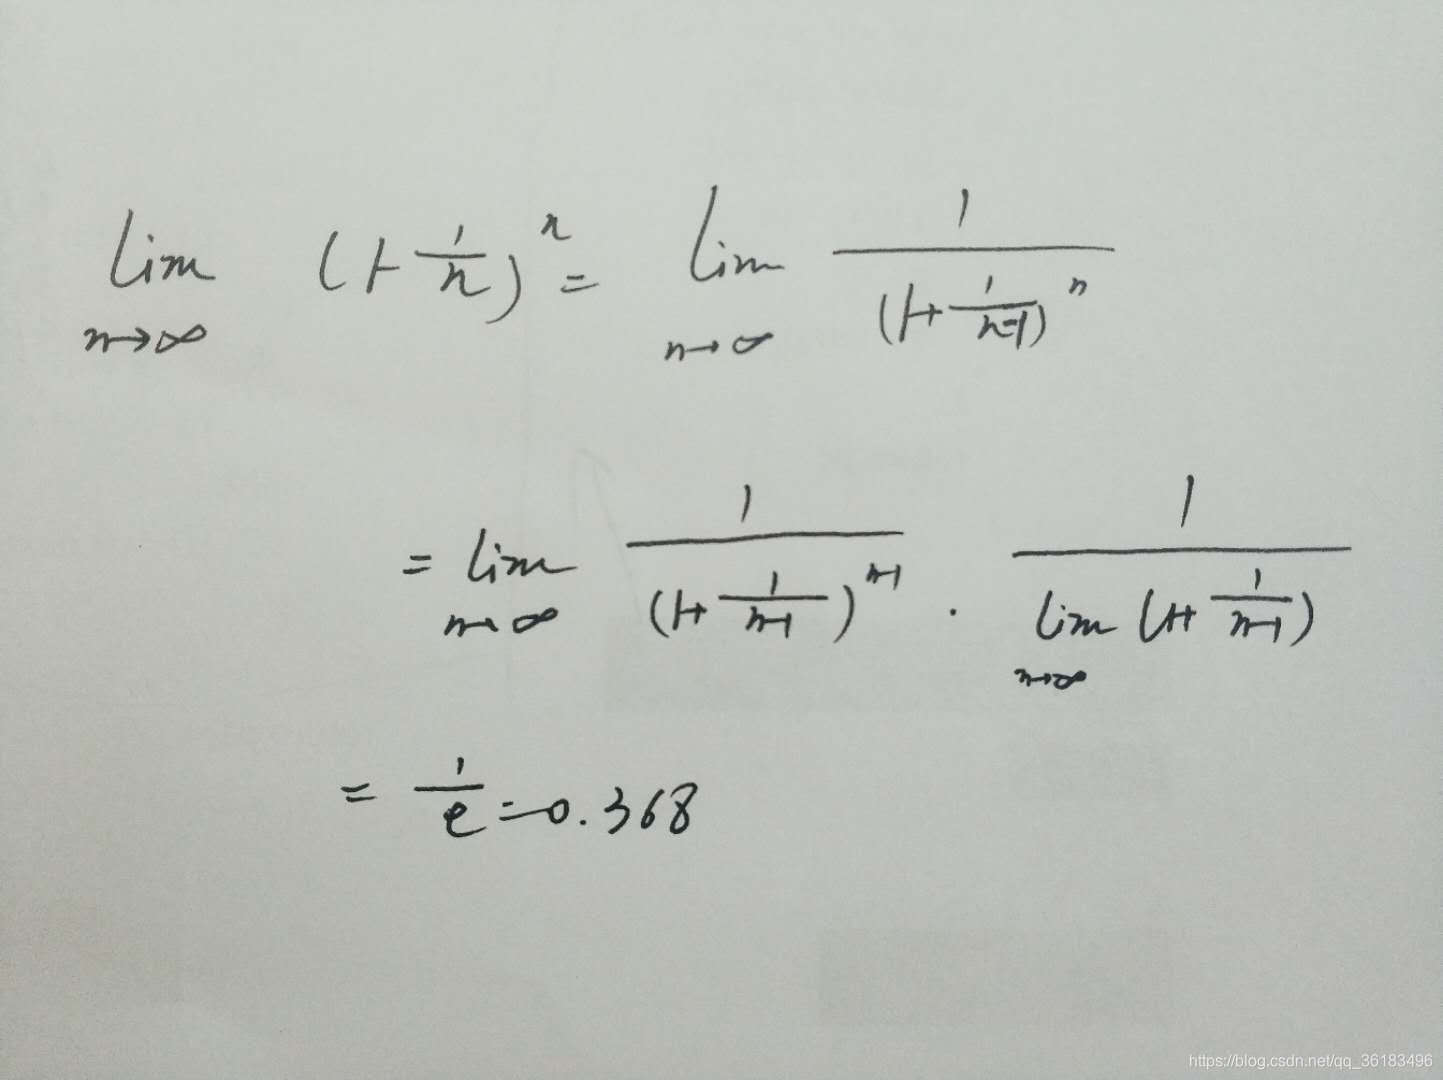 lim n→∞ (1 - 1/n)^n = lim n→∞ 1/(1 + 1/(n-1))^n
= lim n→∞ 1/(1 + 1/(n-1))^(n-1) · 1/(lim n→∞ (1 + 1/(n-1)))
= 1/e = 0.368
https://blog.csdn.net/qq_36183496